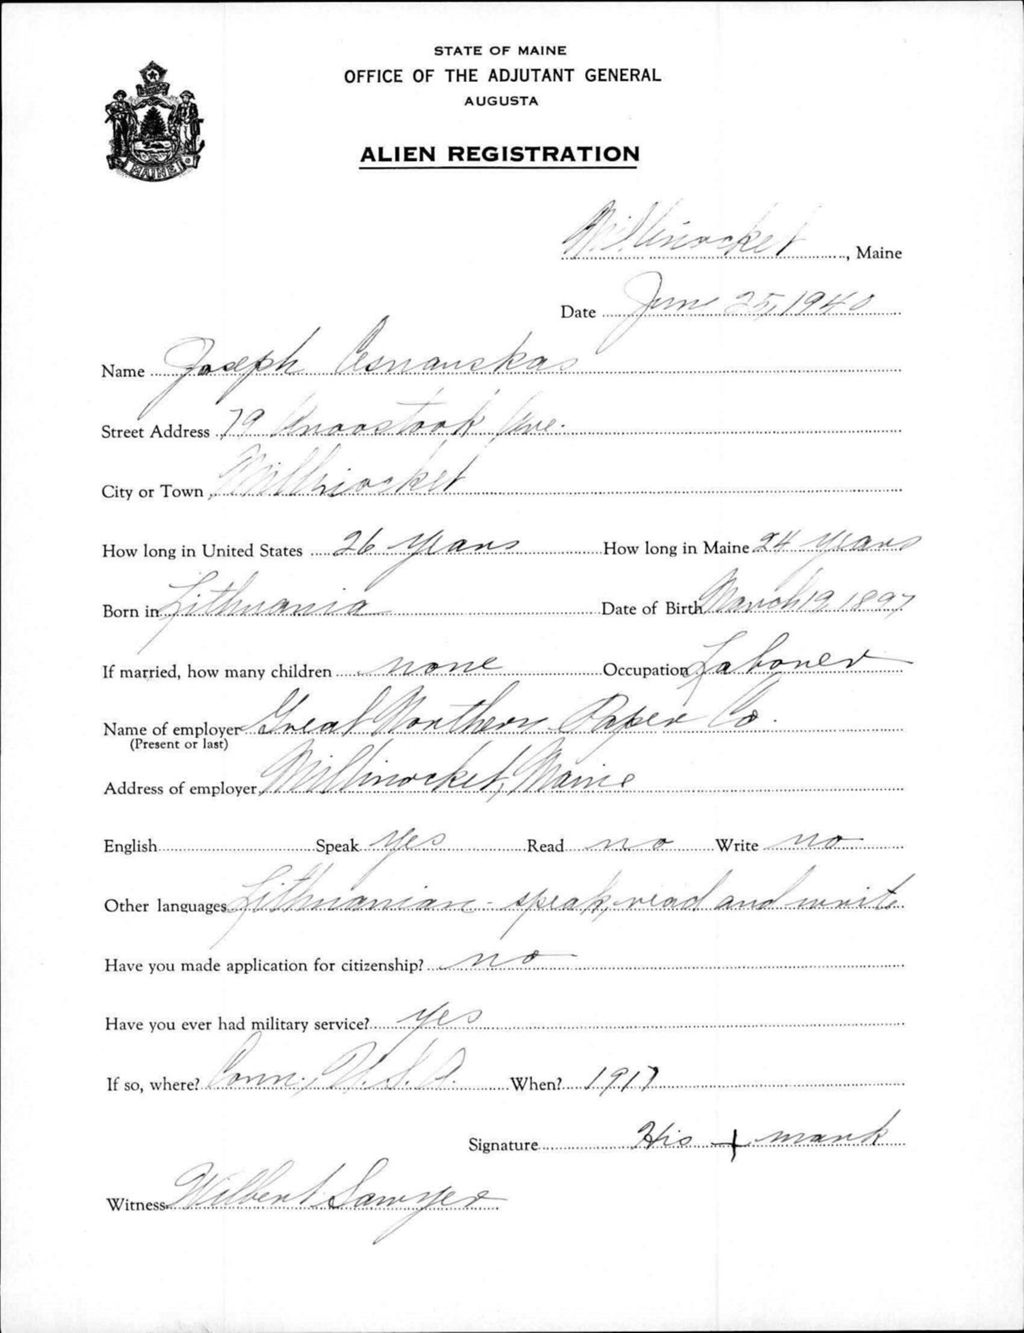 STATE OF MAINE
OFFICE OF THE ADJUTANT GENERAL
AUGUSTA
ALIEN REGISTRATION
MAINE
Millinocket, Maine
Date June 25, 1940
Name Joseph Cesnauskas
Street Address 79 Aroostook Ave.
City or Town Millinocket
How long in United States 26 years How long in Maine 24 years
Born in Lithuania Date of Birth March 19, 1897
If married, how many children none Occupation Laborer
Name of employer Great Northern Paper Co.
(Present or last)
Address of employer Millinocket, Maine
English Speak yes Read no Write no
Other languages Lithuanian - speak, read and write
Have you made application for citizenship? no
Have you ever had military service? yes
If so, where? Conn., U.S.A. When? 1917
Signature His + mark
Witness Wilbert Sawyer